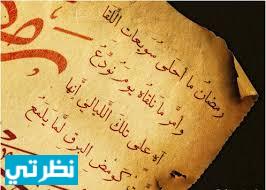 رمضان ما أحلى سويعات اللقا
وأمر ما نلقاه يوم تودع
آه على تلك الليالي أنها
كومض البرق لما يلمع
نظرتي